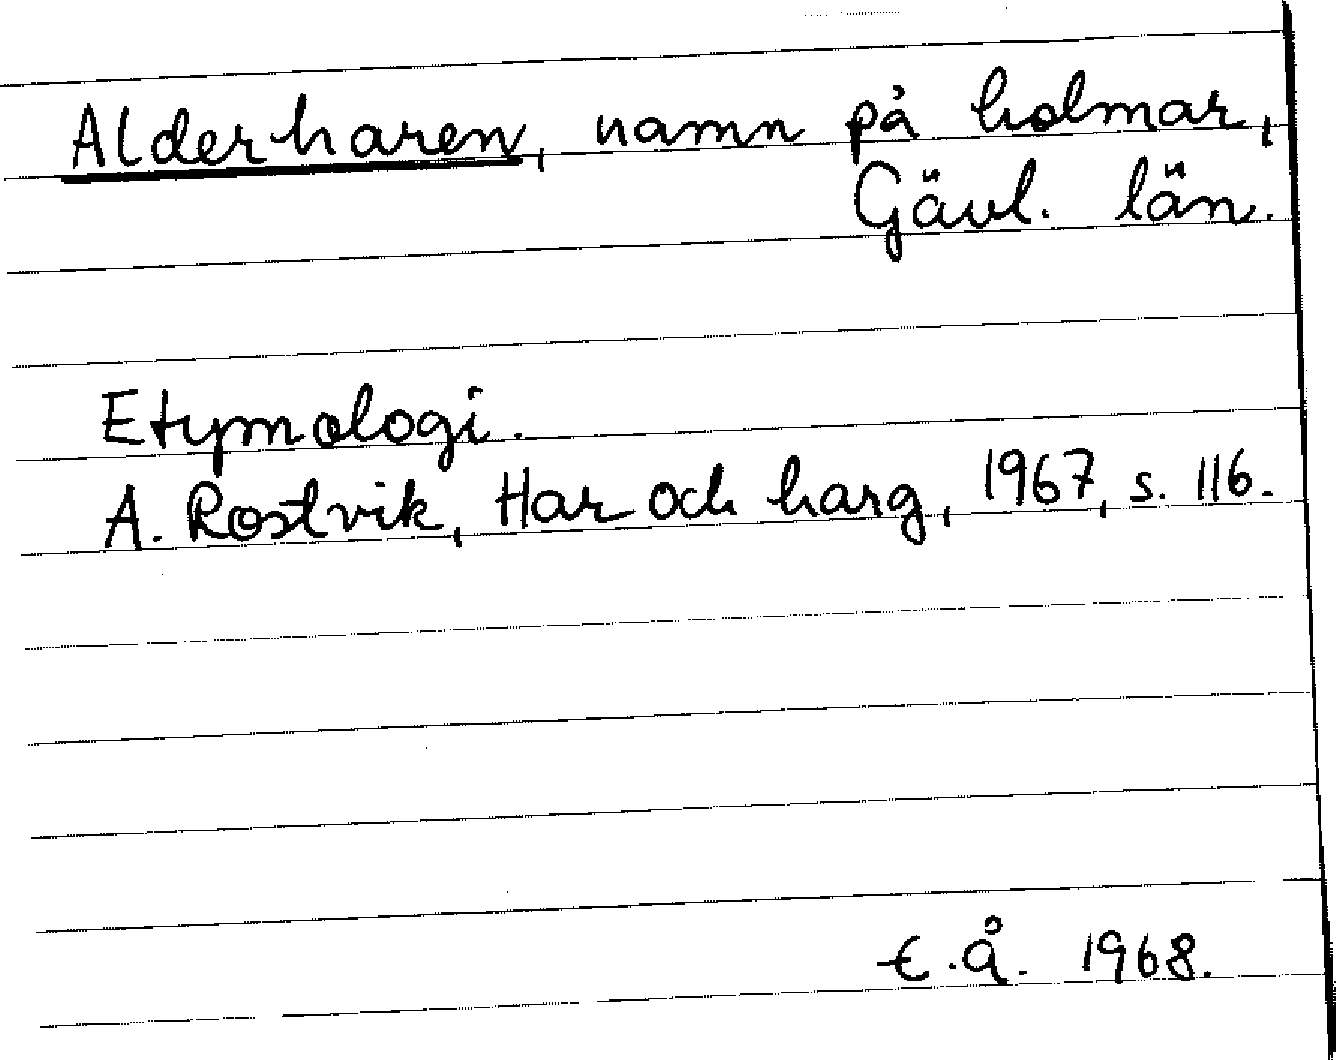 Alderharen, namn på holmar,
Gävl. län.
Etymologi.
A. Rostvik, Har och harg, 1967, s. 116.
E.Å. 1968.